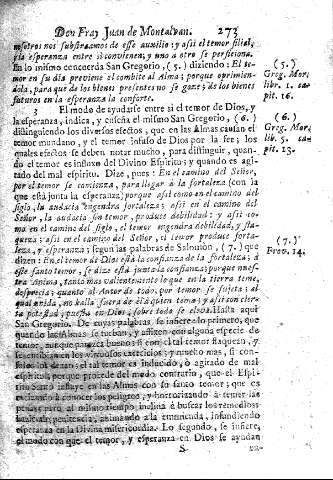 Don Fray Juan de Montalvan. 273
nosotros nos substraemos de esse auxilio; y assi el temor filial,
y la esperança entre si convienen, y uno a otro se perficiona.
En lo mismo concuerda San Gregorio, (5.) diziendo: El te-
mor en su dia previene el combite al Alma; porque oprimien-
dola, para que de los bienes presentes no se goze; de los bienes
futuros en la esperança la conforte.
3 El modo de ayudarse entre si el temor de Dios, y
la esperança, indica, y enseña el mismo San Gregorio, (6.)
distinguiendo los diversos efectos, que en las Almas causan el
temor mundano, y el temor infuso de Dios por la fee; los
quales efectos se deben notar mucho, para distinguir, quan-
do el temor es infuso del Divino Espiritu; y quando es agi-
tado del mal espiritu. Dize, pues: En el camino del Señor,
por el temor se comiença, para llegar à la fortaleza (con la
que està junta la esperança) porque assi como en el camino del
siglo, la audacia engendra fortaleza; assi en el camino del
Señor, la audacia sin temor, produce debilidad: y assi co-
mo en el camino del siglo, el temor engendra debilidad, y fla-
queza; assi en el camino del Señor, el temor produce forta-
leza, y esperança; segun las palabras de Salomòn, (7.) que
dizen: En el temor de Dios està la confianza de la fortaleza; à
este santo temor, se dize està junta la confianza; porque nues-
tra Anima, tanto mas valientemente lo que en la tierra teme,
desprecia; quanto al Autor de todo, por temor se sujeta; al
qual unida, no halla fuera de èl à quien tema; y assi con cier-
ta potestad, puesta en Dios, sobre todo se eleva. Hasta aqui
San Gregorio. De cuyas palabras se infiere lo primero, que
quando las Almas se turban, y afligen con alguna especie de
temor, aunque parezca bueno; si con el tal temor flaquean, y
se entibian en los virtuosos exercicios; y mucho mas, si con-
los dexan; el tal temor es inducido, ò agitado de mal
espiritu; porque procede del modo contrario, que el Espi-
ritu Santo influye en las Almas con su santo temor; que es
excitando à conocer los peligros, y horrorizando à temer las
penas; pero al mismo tiempo inclina à buscar los remedios
penitencia, animando à la enmienda, infundiendo
esperança en la Divina misericordia. Lo segundo, se infiere,
el modo con que el temor, y esperança en Dios se ayudan
S
(5.)
Greg. Mor.
libr. 1. ca-
pit. 16.
(6.)
Greg. Mor.
lib. 5. ca-
pit. 13.
(7.)
Prov. 14.